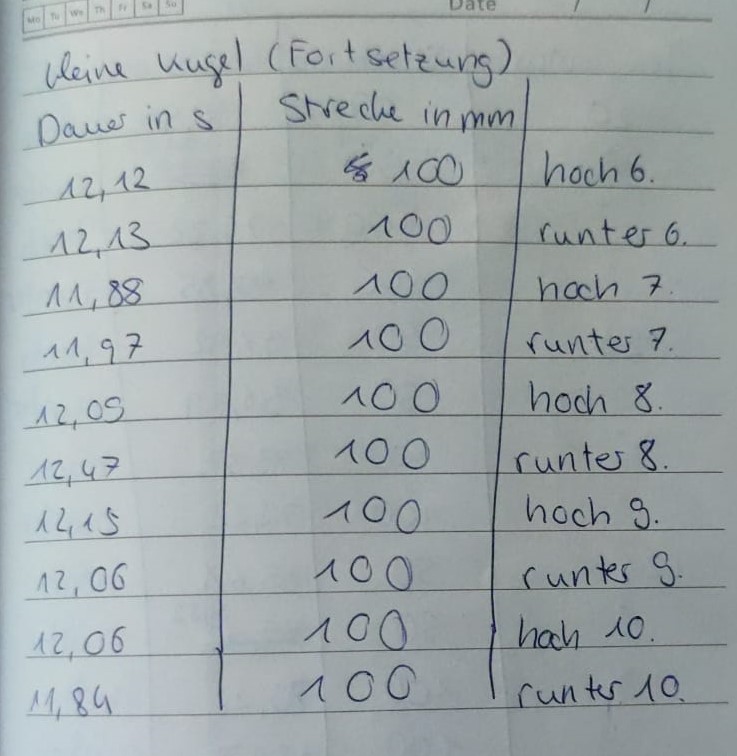 Mo Tu We Th Fr Sa Su Date / /
kleine Kugel (Fortsetzung)
Dauer in s Strecke in mm
12,12 100 hoch 6.
12,13 100 runter 6.
11,88 100 hoch 7.
11,97 100 runter 7.
12,09 100 hoch 8.
12,47 100 runter 8.
12,15 100 hoch 9.
12,06 100 runter 9.
12,06 100 hoch 10.
11,84 100 runter 10.